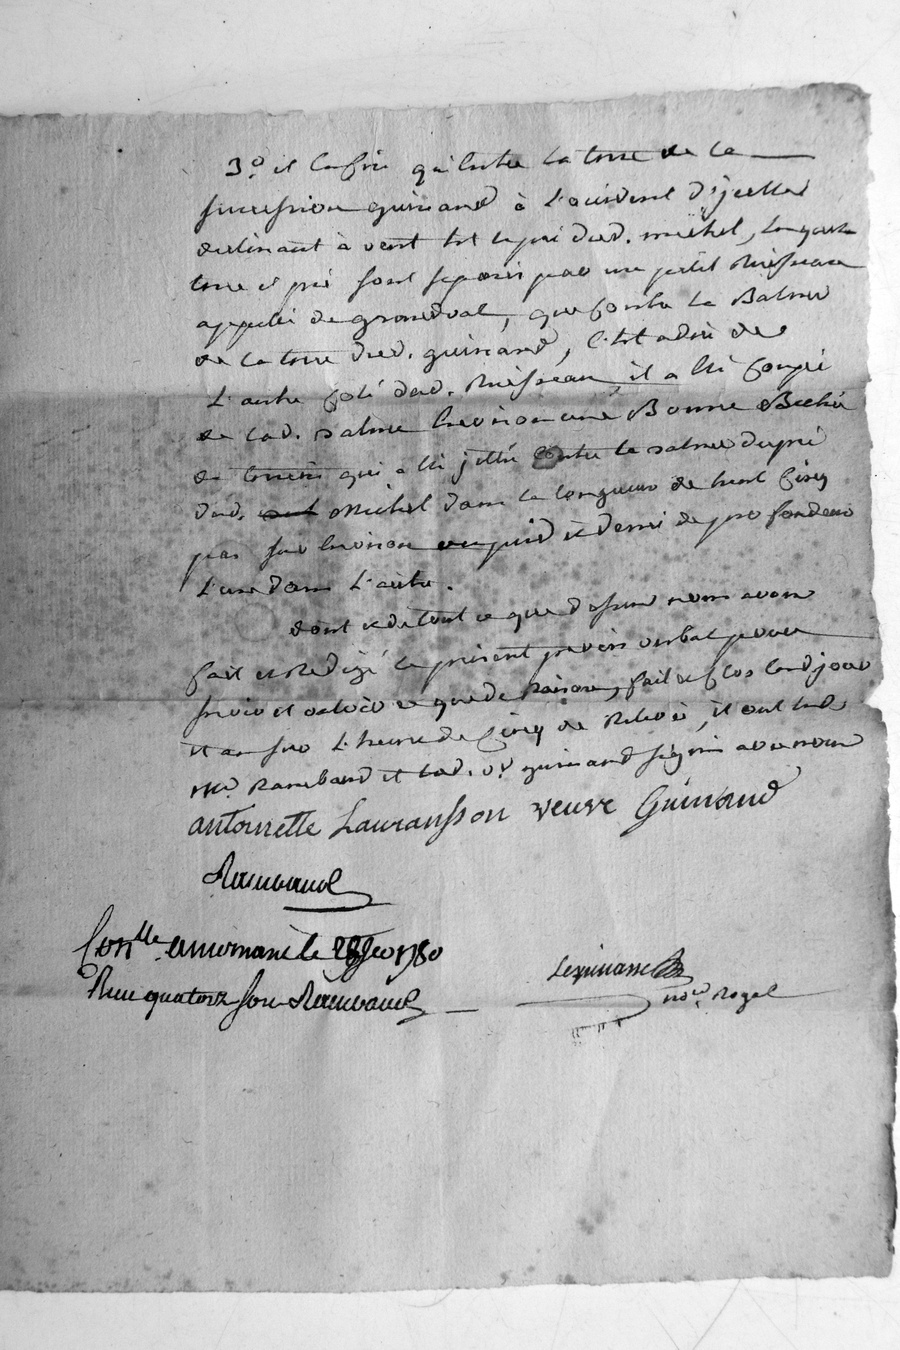 3.º et enfin qu'entre la terre de la
succession guinand à l'occident d'jcelles
declinant à vent est le pré dud. michel, lesquels
terre et pré sont séparés par un petit Ruisseau
appellé de grandval, que contre la Balme
de la terre dud. guinand, c'est adire de
L'autre coté dud. Ruisseau il a été coupé
de lad. balme environ une Bonne Bechée
de terrein qui a été jetté contre la balme du pré
dud. Michel dans la longueur de huit cinq
pas sur environ un pied et demi de profondeur
L'une dans L'autre.
dont et de tout ce que dessus nous avons
fait et Redigé le présent procès verbal pour
servir et valoir ce que de Raison, fait et clos led. jour
et an sur L'heure de cinq de Relevée, et ont led.
Me. Rambaud et lad. ve. guinand signé avec nous
antoinette Lauransson veuve Guinand
Rambaud
Conlle. a mornant le 1780
Reçu quatorze sous Rambaud
nore. Royal